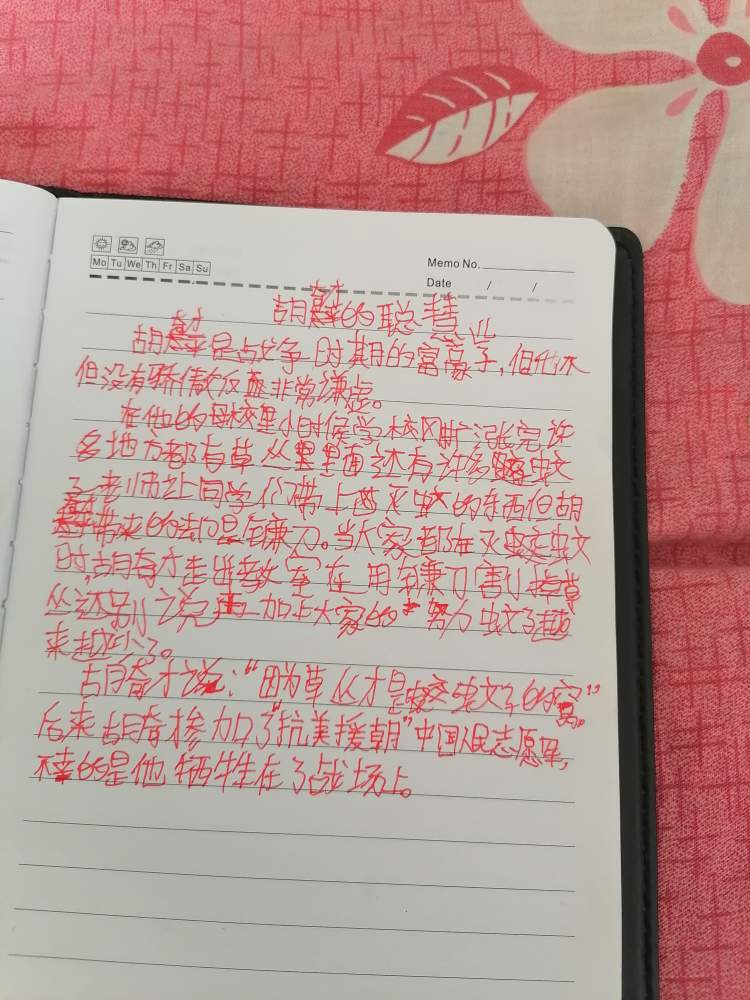 Mo Tu We Th Fr Sa Su
Memo No.
Date / /
胡奇才的聪慧
胡奇才是占战争时期的富豪子,但他不
但没有骄傲反而非常谦虚。
在他的母校里小时候学校刚扩涨完许
多地方都有草丛里里面还有许多蚊
子老师让同学们带上西灭蚊的东西但胡
带来的却是镰刀。当大家都在灭蚊
时,胡奇才走出教室在用镰刀割掉草
丛还别说加上大家的努力蚊子越
来越少了。
胡奇才说:“因为草丛才是蚊子的窝。”
后来胡奇才参加了“抗美援朝”中国人民志愿军,
不幸的是他牺牲在了战场上。